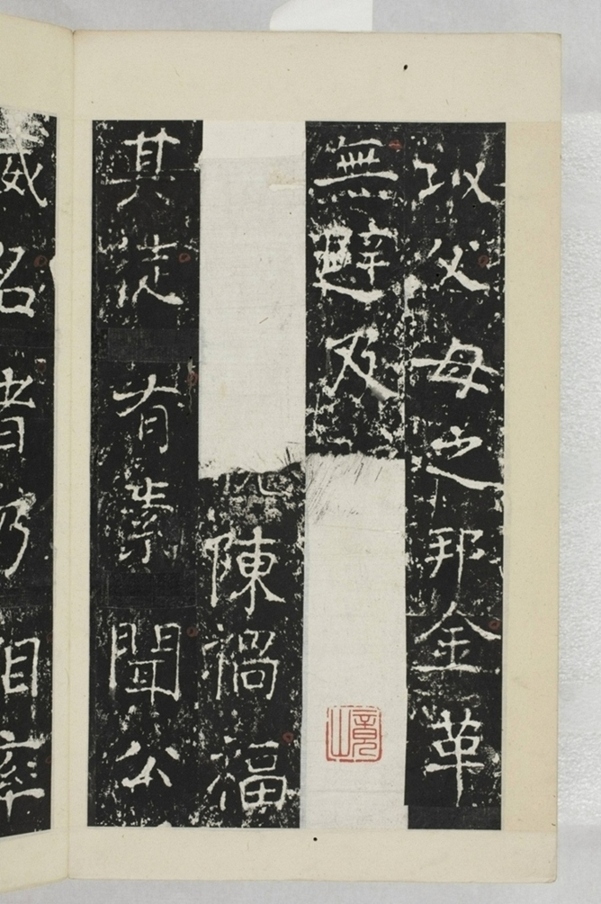 以父母之邦金革
無避及
陳禍福
其徒有素聞公
威名者乃相率